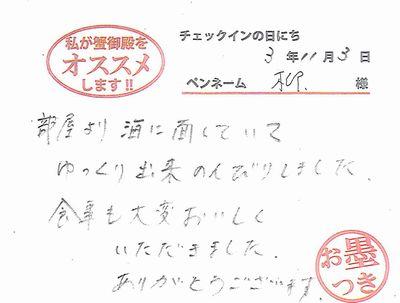 私が蟹御殿を
オススメ
します!!
チェックインの日にち
3年11月3日
ペンネーム 様
部屋より海に面していて
ゆっくり出来のんびりしました.
食事も大変おいしく
いただきました.
ありがとうございます
お墨
つき